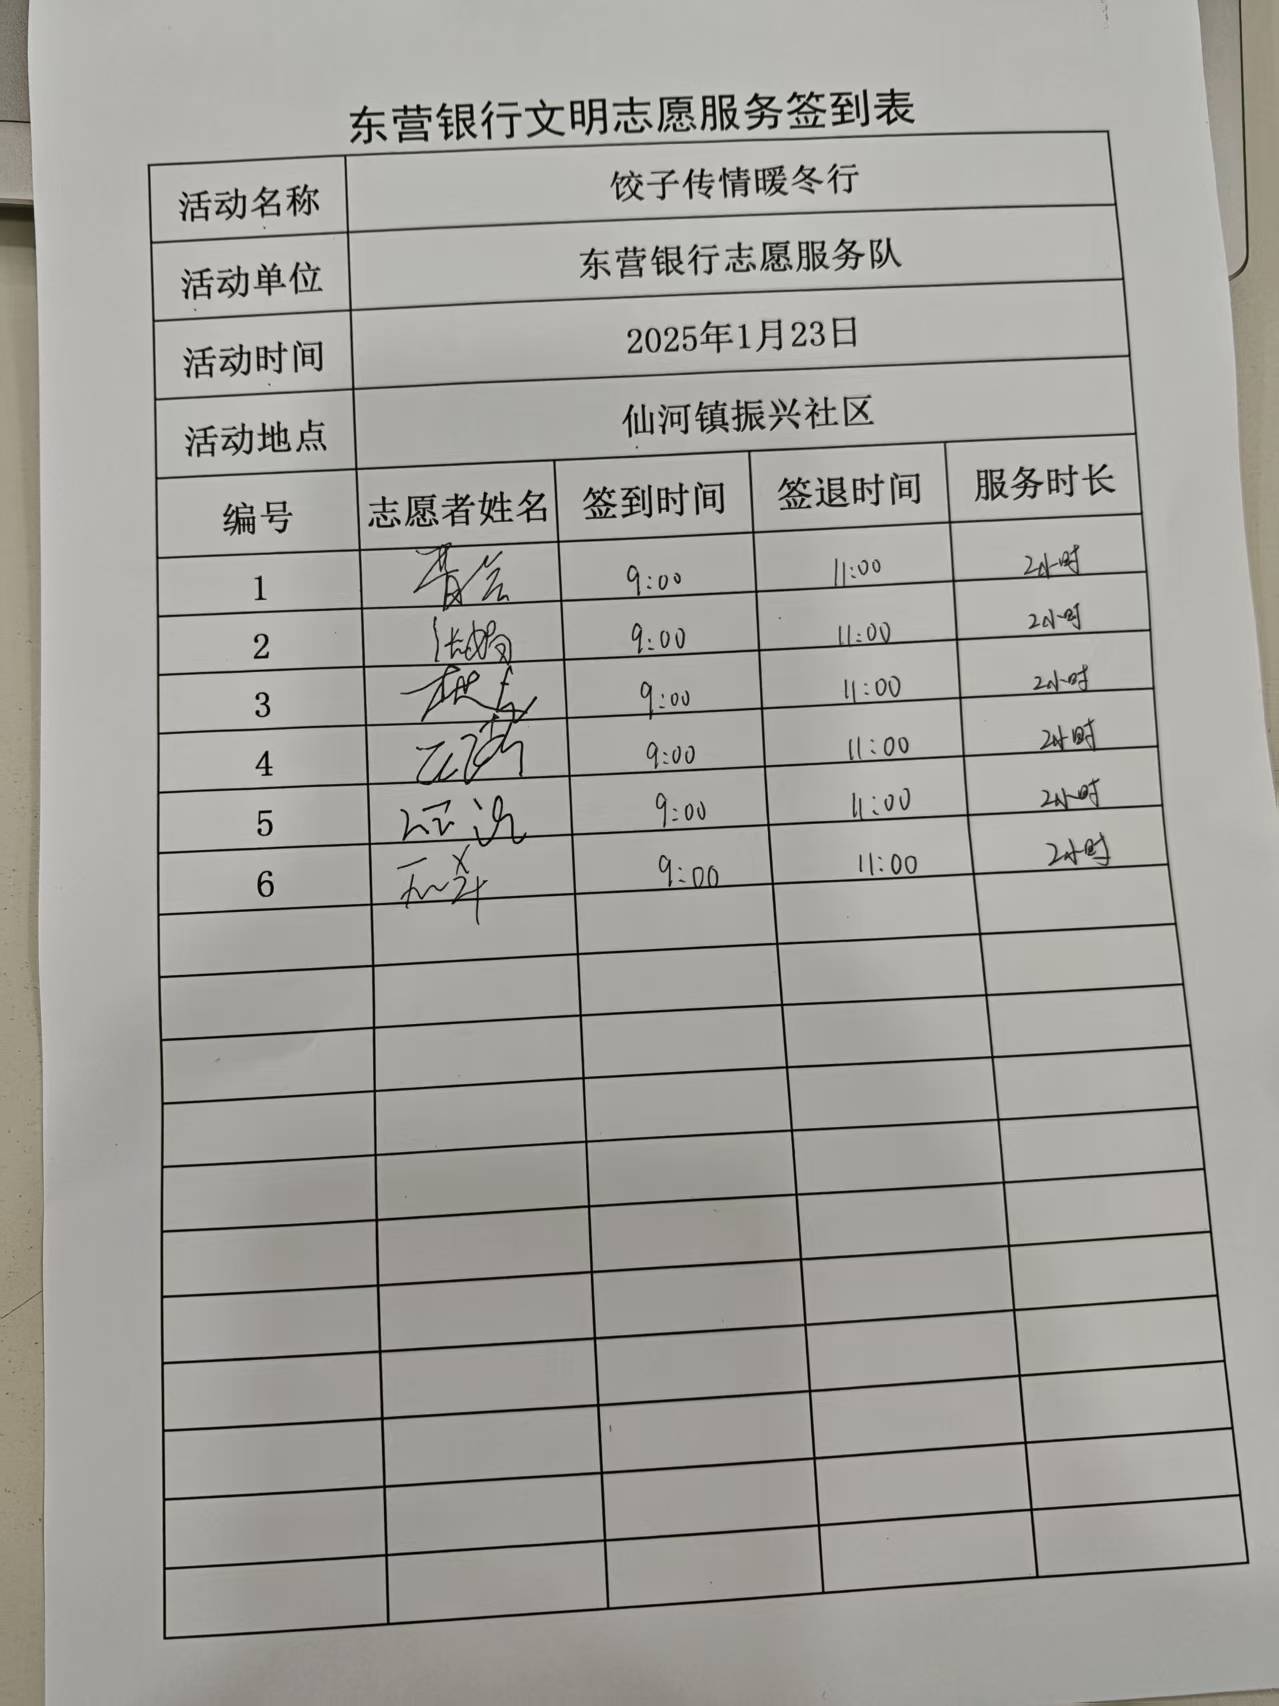 东营银行文明志愿服务签到表
活动名称 饺子传情暖冬行
活动单位 东营银行志愿服务队
活动时间 2025年1月23日
活动地点 仙河镇振兴社区
编号 志愿者姓名 签到时间 签退时间 服务时长
1 9:00 11:00 2小时
2 9:00 11:00 2小时
3 9:00 11:00 2小时
4 9:00 11:00 2小时
5 9:00 11:00 2小时
6 9:00 11:00 2小时